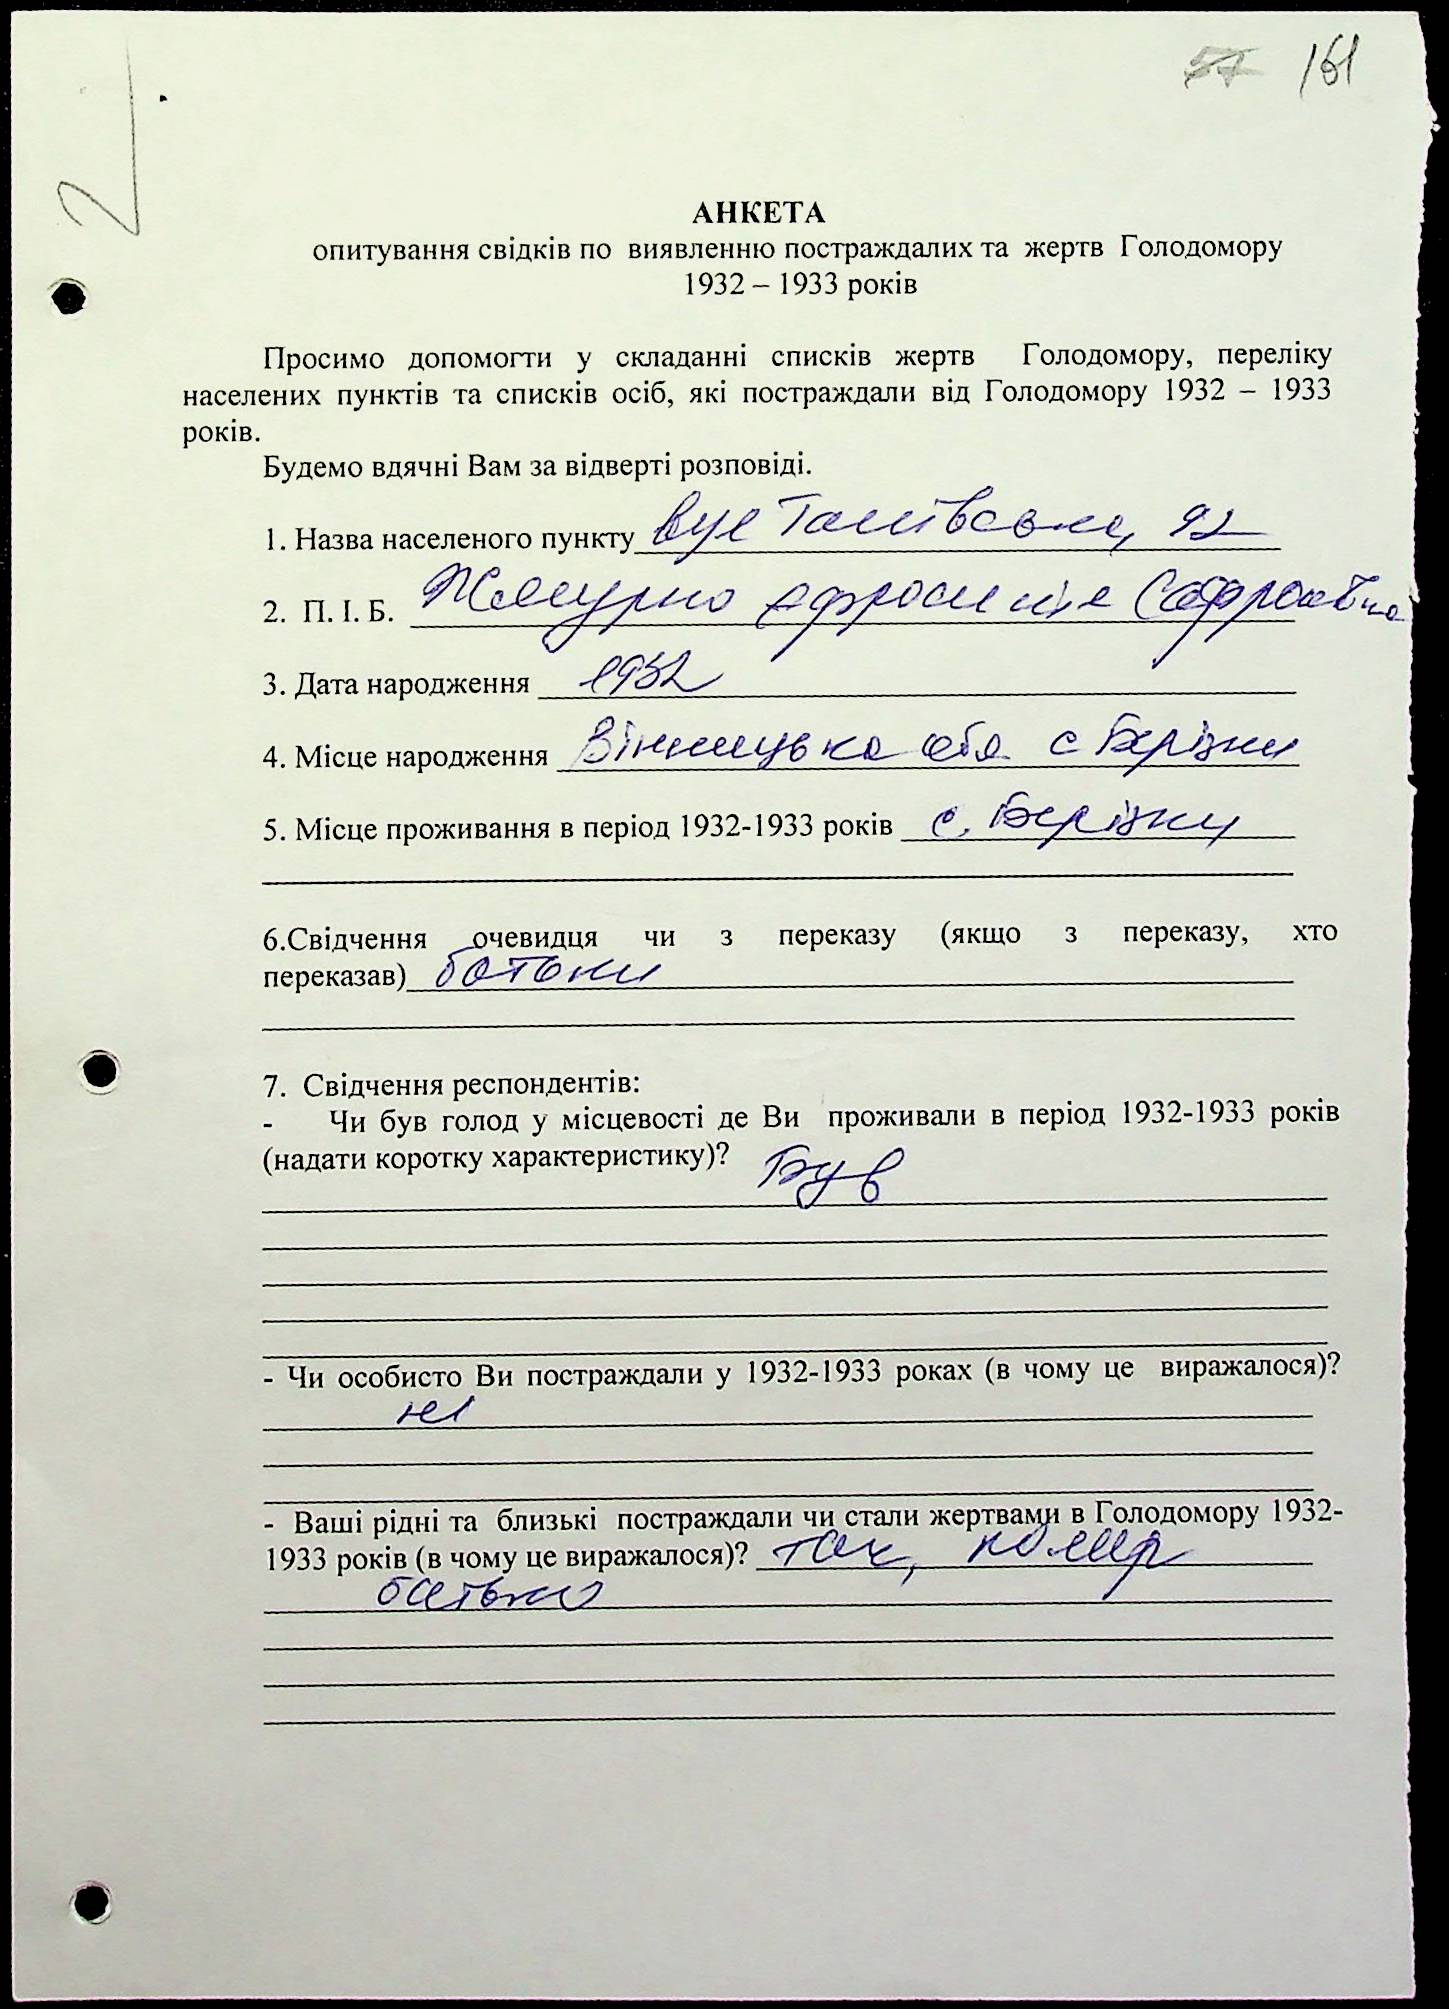 57 161
2
АНКЕТА
опитування свідків по виявленню постраждалих та жертв Голодомору
1932 – 1933 років
Просимо допомогти у складанні списків жертв Голодомору, переліку
населених пунктів та списків осіб, які постраждали від Голодомору 1932 – 1933
років.
Будемо вдячні Вам за відверті розповіді.
1. Назва населеного пункту вул 92
2. П. І. Б.
3. Дата народження 1932
4. Місце народження Вінницька обл с Берізки
5. Місце проживання в період 1932-1933 років с. Берізки
6.Свідчення очевидця чи з переказу (якщо з переказу, хто
переказав) батьки
7. Свідчення респондентів:
- Чи був голод у місцевості де Ви проживали в період 1932-1933 років
(надати коротку характеристику)? Був
- Чи особисто Ви постраждали у 1932-1933 роках (в чому це виражалося)?
ні
- Ваші рідні та близькі постраждали чи стали жертвами в Голодомору 1932-
1933 років (в чому це виражалося)? так, помер
батько